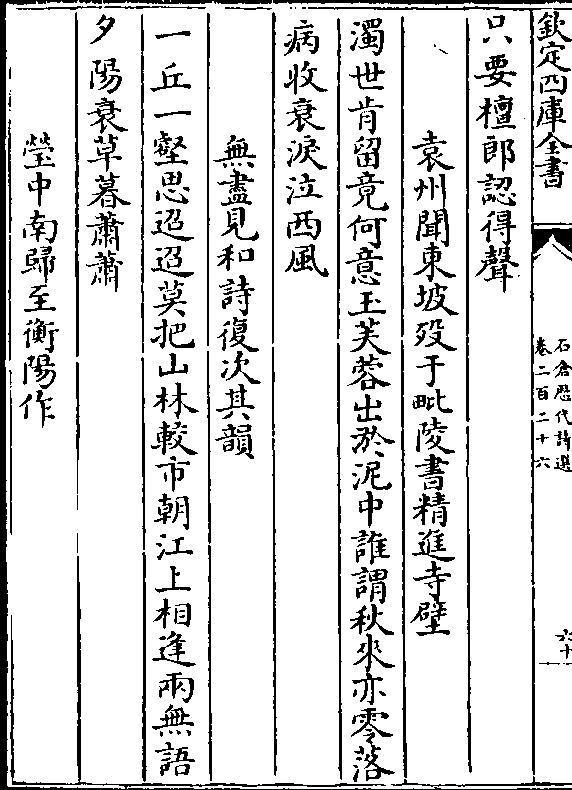 欽定四庫全書
石倉歷代詩選
卷二百二十六
六十
只要檀郎認得聲
袁州聞東坡歿于毗陵書精進寺壁
濁世肯留竟何意玉芙蓉出於泥中誰謂秋來亦零落
病收衰淚泣西風
無盡見和詩復次其韻
一丘一壑思迢迢莫把山林較市朝江上相逢兩無語
夕陽衰草暮蕭蕭
瑩中南歸至衡陽作